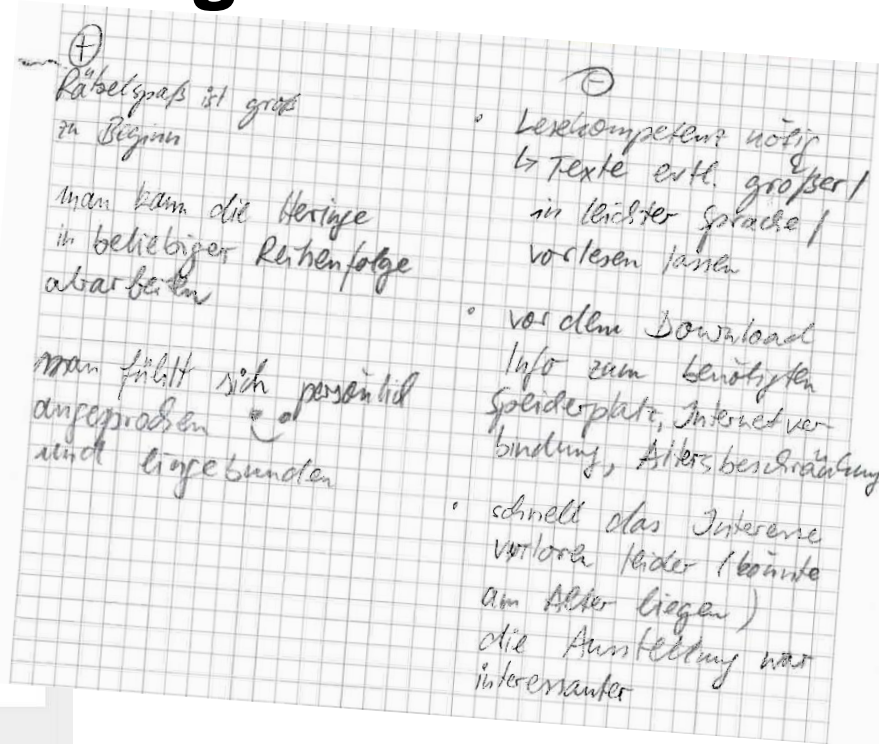 +
Rätselspaß ist groß
zu Beginn
man kann die Heringe
in beliebiger Reihenfolge
abarbeiten
man fühlt sich persönlich
angesprochen
und eingebunden
-
• Lesekompetenz nötig
↳ Texte evtl. größer /
in leichter Sprache /
vorlesen lassen
• vor dem Download
Info zum benötigten
Speicherplatz, Internetver-
bindung, Altersbeschränkung
• schnell das Interesse
verloren leider (könnte
am Alter liegen)
die Ausstellung war
interessanter